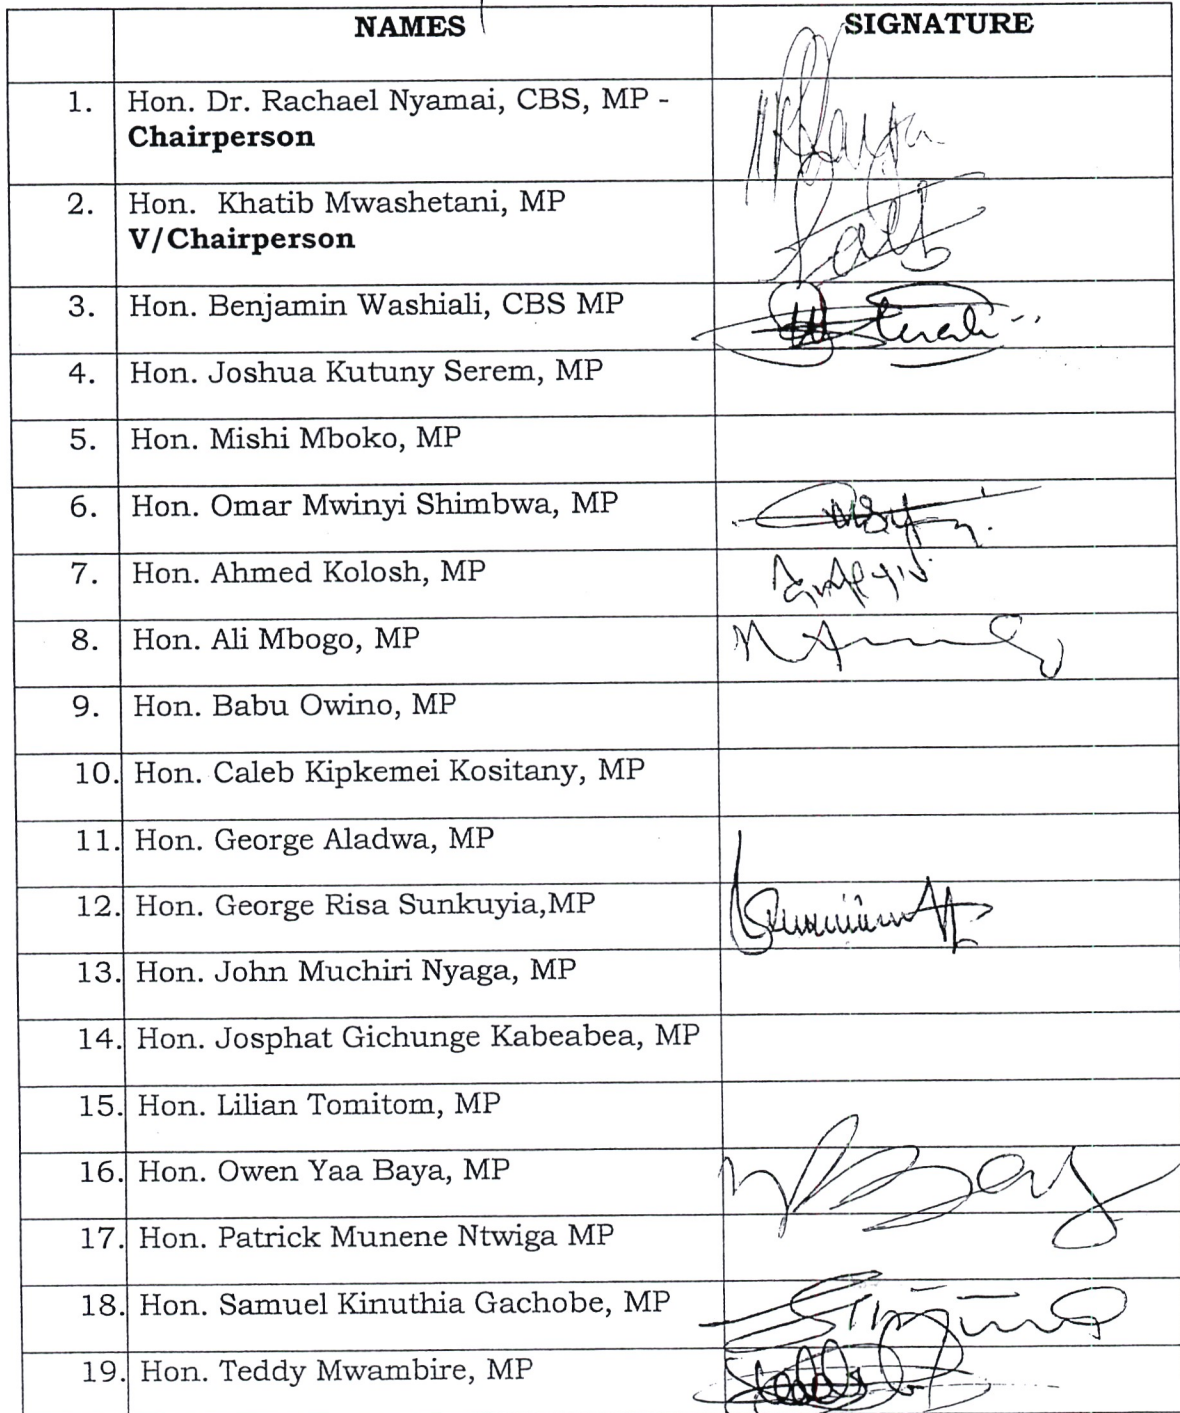 NAMES SIGNATURE
1. Hon. Dr. Rachael Nyamai, CBS, MP -
Chairperson
2. Hon. Khatib Mwashetani, MP
V/Chairperson
3. Hon. Benjamin Washiali, CBS MP
4. Hon. Joshua Kutuny Serem, MP
5. Hon. Mishi Mboko, MP
6. Hon. Omar Mwinyi Shimbwa, MP
7. Hon. Ahmed Kolosh, MP
8. Hon. Ali Mbogo, MP
9. Hon. Babu Owino, MP
10. Hon. Caleb Kipkemei Kositany, MP
11. Hon. George Aladwa, MP
12. Hon. George Risa Sunkuyia,MP
13. Hon. John Muchiri Nyaga, MP
14. Hon. Josphat Gichunge Kabeabea, MP
15. Hon. Lilian Tomitom, MP
16. Hon. Owen Yaa Baya, MP
17. Hon. Patrick Munene Ntwiga MP
18. Hon. Samuel Kinuthia Gachobe, MP
19. Hon. Teddy Mwambire, MP